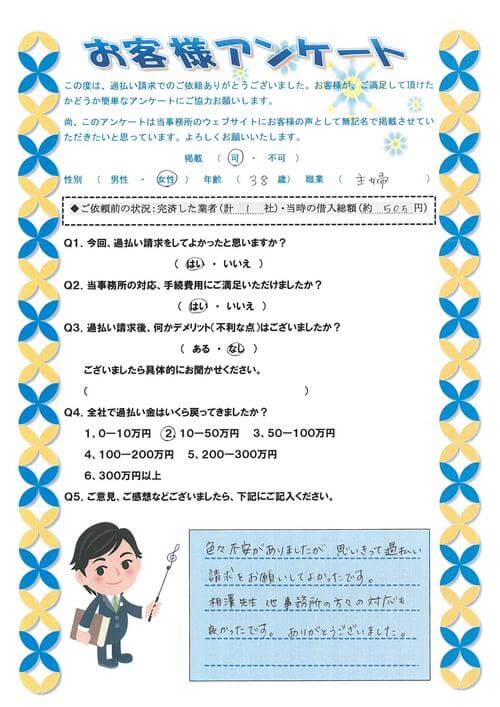 お客様アンケート
この度は、過払い請求でのご依頼ありがとうございました。お客様が、ご満足して頂けた
かどうか簡単なアンケートにご協力お願いします。
尚、このアンケートは当事務所のウェブサイトにお客様の声として無記名で掲載させてい
ただきたいと思っています。よろしくお願いいたします。
掲載 （ 可 ・ 不可 ）
性別 （ 男性 ・ 女性 ） 年齢 （ 38 歳） 職業 （ 主婦 ）
◆ご依頼前の状況：完済した業者（計 1 社）・当時の借入総額（約 50万 円）
Q1．今回、過払い請求をしてよかったと思いますか？
（ はい ・ いいえ ）
Q2．当事務所の対応、手続費用にご満足いただけましたか？
（ はい ・ いいえ ）
Q3．過払い請求後、何かデメリット（不利な点）はございましたか？
（ ある ・ なし ）
ございましたら具体的にお聞かせください。
（ ）
Q4．全社で過払い金はいくら戻ってきましたか？
1、0－10万円 2、10－50万円 3、50－100万円
4、100－200万円 5、200－300万円
6、300万円以上
Q5．ご意見、ご感想などございましたら、下記にご記入ください。
色々不安がありましたが 思いきって過払い
請求をお願いしてよかったです。
相澤先生 他事務所の方々の対応も
良かったです。 ありがとうございました。